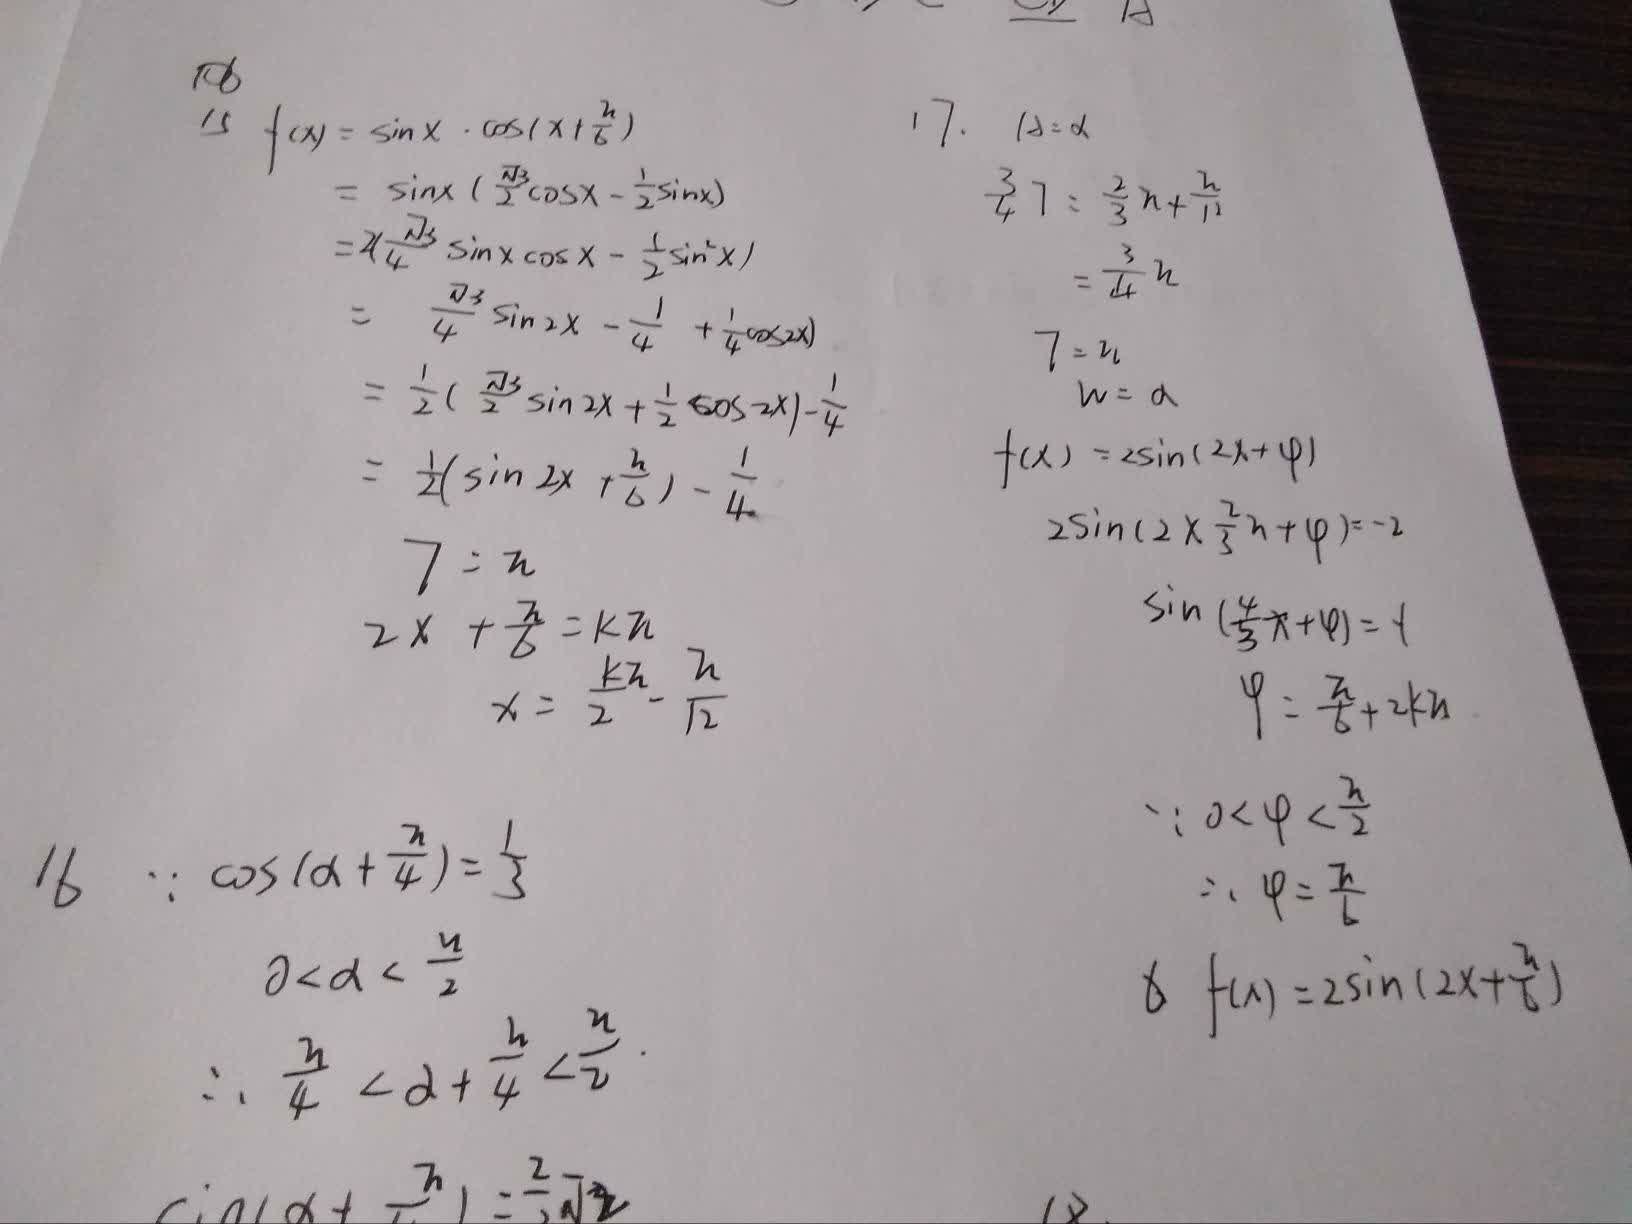 15 f(x) = sinx · cos(x+π/6)
= sinx(√3/2 cosx - 1/2 sinx)
= 2(√3/4 sinx cosx - 1/2 sin²x)
= √3/4 sin2x - 1/4 + 1/4 cos2x)
= 1/2(√3/2 sin2x + 1/2 cos2x) - 1/4
= 1/2(sin 2x + π/6) - 1/4
T = π
2x + π/6 = kπ
x = kπ/2 - π/12
16 ∵ cos(α + π/4) = 1/3
0<α<π/2
∴ π/4 < α + π/4 < π/2
17. A=2
3/4 T = 2/3 π + π/12
= 3/4 π
T = π
w = 2
f(x) = 2sin(2x+φ)
2sin(2×2/3 π+φ)=-2
sin(4/3 π+φ)=-1
φ = π/6 + 2kπ
∵ 0<φ<π/2
∴ φ = π/6
f(x) = 2sin(2x+π/6)
18.